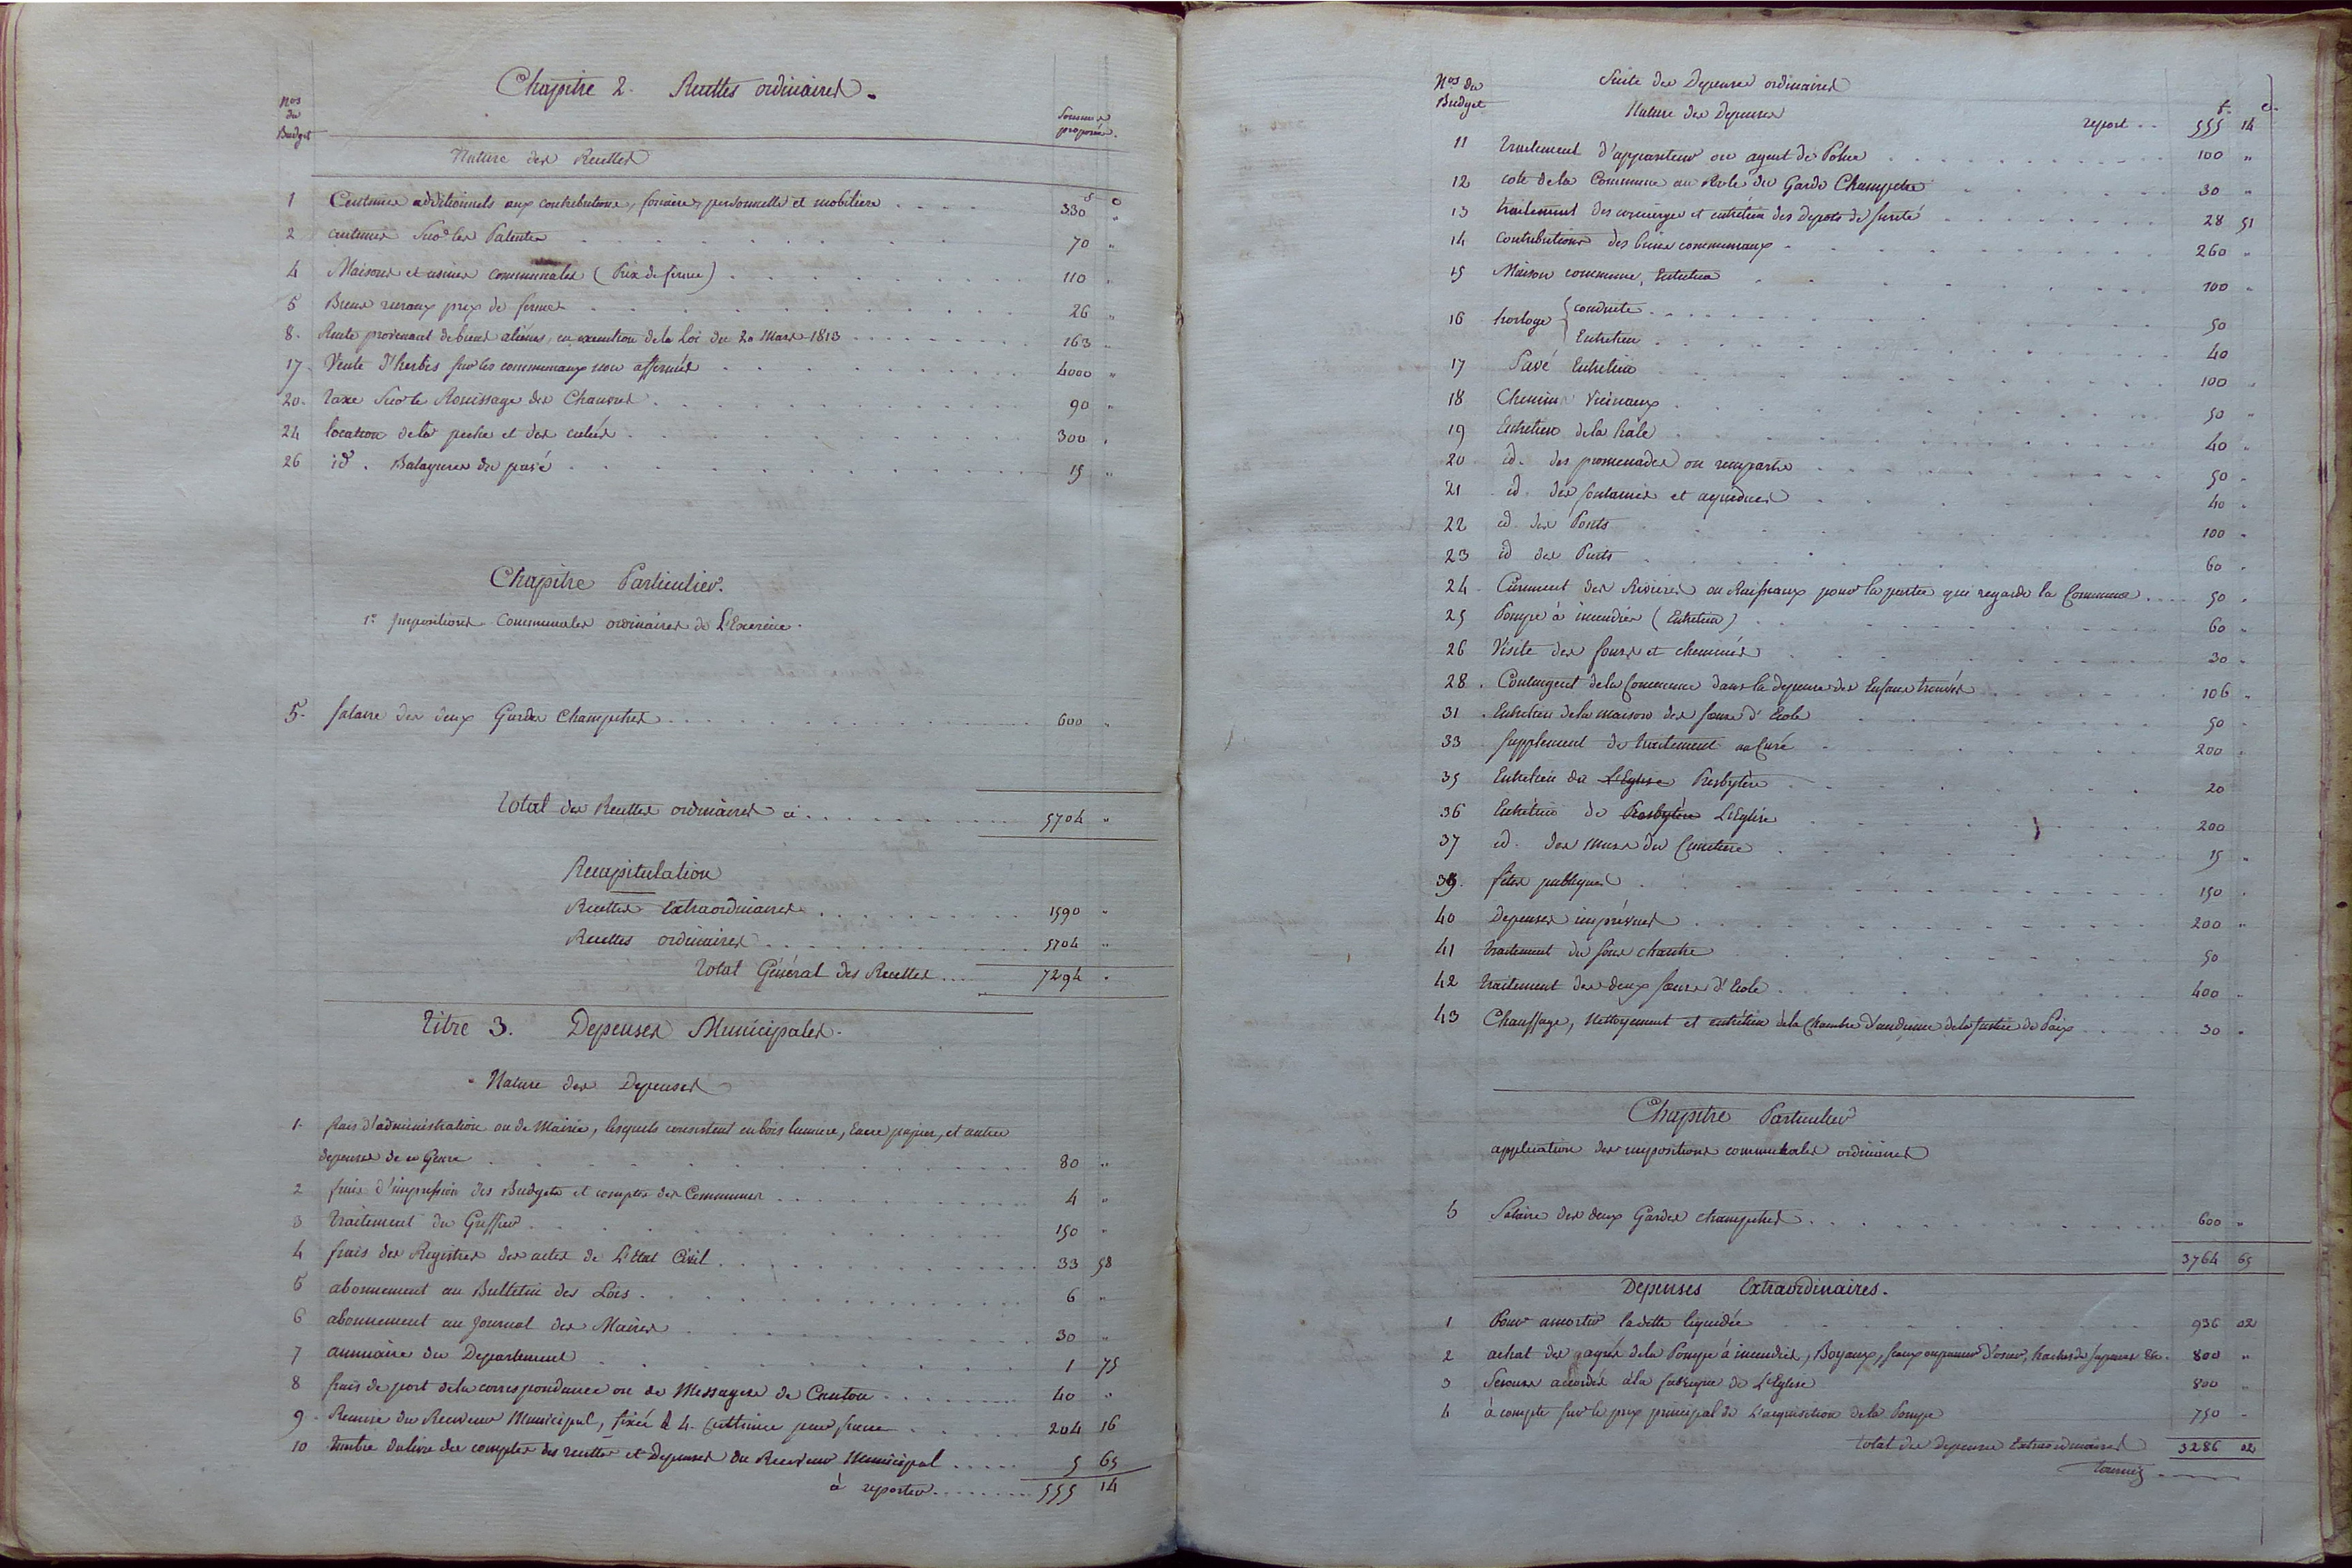 Chapitre 2. Recettes ordinaires.
Nos du Budget
Sommes proposées.
Nature des Recettes
1 Centimes additionnels aux contributions, foncière, personnelle et mobilière .... 330 "
2 centimes sur les Patentes 70 "
4 Maisons et usines communales (Prix de ferme) 110 "
5 Biens ruraux prix de ferme 26 "
8. Rente provenant de biens aliénés, en execution de la Loi du 20 Mars 1813 163 "
17. Vente d'herbes sur les communaux non affermés 4000 "
20. Taxe sur le Rouissage des Chanvres 90 "
24 location de la peche et des 300 "
26 id. Balayures du pavé 15 "
Chapitre Particulier.
1er Impositions Communales ordinaires de L'Exercice.
5. Salaire des deux Gardes Champetres 600 "
Total des Recettes ordinaires ci 5704 "
Recapitulation
Recettes Extraordinaires 1590 "
Recettes ordinaires 5704 "
Total Général des Recettes 7294 "
Titre 3. Depenses Municipales.
Nature des Depenses
1. frais d'administration ou de Mairie, lesquels consistent en bois lumiere, Encre papier, et autres
depenses de ce Genre 80 "
2 frais d'impression des Budgets et comptes des Communes 4 "
3 Traitement du Greffier 150 "
4 frais des Registres des actes de L'Etat Civil 33 58
5 abonnement au Bulletin des Lois 6 "
6 abonnement au Journal des Maires 30 "
7 annuaire du Departement 1 75
8 frais de port de la correspondance ou de Messagers de Canton 40 "
9. Remise du Receveur Municipal, fixée à 4. Centimes pour franc 204 16
10 Timbre du livre des comptes des recettes et Depenses du Receveur Municipal 5 65
à reporter 555 14
Nos du Budget
Suite des Depenses ordinaires
Nature des Depenses
f. c.
report .. 555 14
11 Traitement d'appariteur ou agent de Police 100 "
12 cote de la Commune au Role du Garde Champetre 30 "
13 traitement des concierges et entretien des depots de sureté 28 51
14 Contributions des biens communaux 260 "
15 Maison commune, Entretien 100 "
16 horloge { conduite 50
Entretien 40
17 Pavé Entretien 100 "
18 Chemins Vicinaux 50 "
19 Entretien de la hâle 40 "
20 id. des promenades ou remparts 50 "
21 id. des fontaines et aqueducs 40 "
22 id. des Ponts 100 "
23 id des Puits 60 "
24. Curement des Rivieres ou Ruisseaux pour la partie qui regarde la Commune 50 "
25 Pompe à incendies (Entretien) 60 "
26 Visite des fours et cheminées 30 "
28. Contingent de la Commune dans la depense des Enfans trouvés 106 "
31. Entretien de la maison des soeurs d'Ecole 50 "
33 Supplement de traitement au Curé 200 "
35 Entretien du L'Eglise Presbytère 20
36 Entretien de Presbytère L'Eglise 200
37 id. des murs du Cimetiere 15 "
39. fêtes publiques 150 "
40 Depenses imprévues 200 "
41 Traitement du sous chantre 50
42 Traitement des deux soeurs d'Ecole 400 "
43 Chauffage, Nettoyement et entretien de la Chambre d'audience de la Justice de Paix 30 "
Chapitre Particulier
application des impositions communales ordinaires
5 Salaire des deux Gardes champetres 600 "
3764 65
Depenses Extraordinaires.
1 Pour amortir la dette liquidée 936 02
2 achat des agrés de la Pompe à incendies, Boyaux, seaux ou paniers d'osier, haches de sapeurs &c. 800 "
3 Secours accordés à la fabrique de L'Eglise 800 "
4 à compte sur le prix principal de L'acquisition de la Pompe 750 "
Total des depenses Extraordinaires 3286 02
Tournez